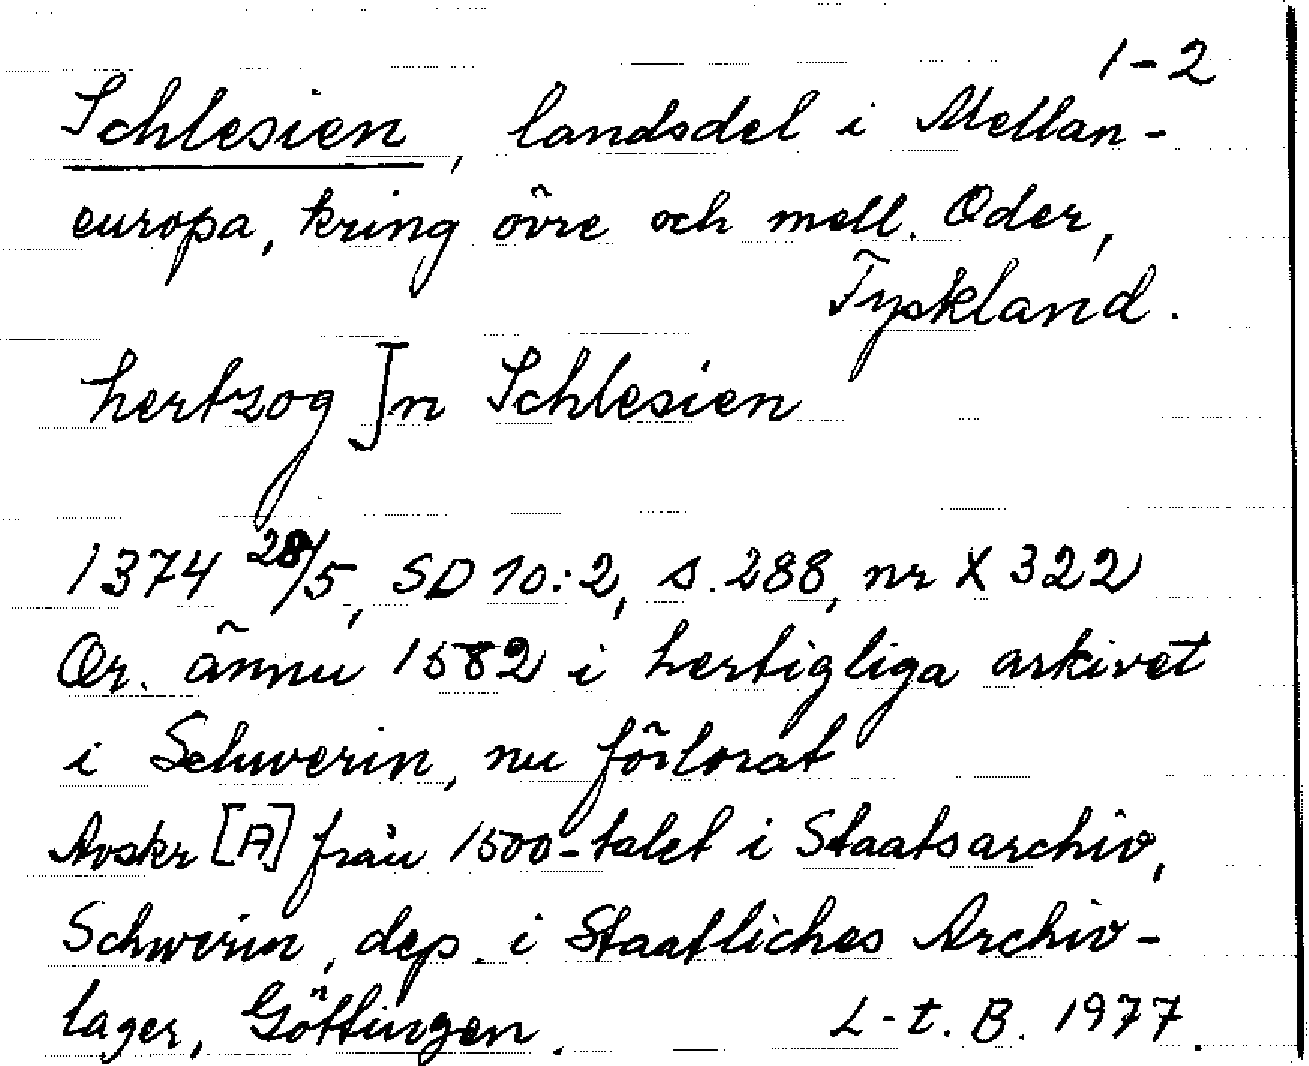 1-2
Schlesien, landsdel i Mellan-
europa, kring övre och mell. Oder,
Tyskland.
hertzog ] n Schlesien
1374 28/5, SD 10:2, s. 288, nr X 322
Or. ännu 1582 i hertigliga arkivet
i Schwerin, nu förlorat
Avskr [A] från 1500-talet i Staatsarchiv,
Schwerin, dep. i Staatliches Archiv-
lager, Göttingen. L-t. B. 1977.